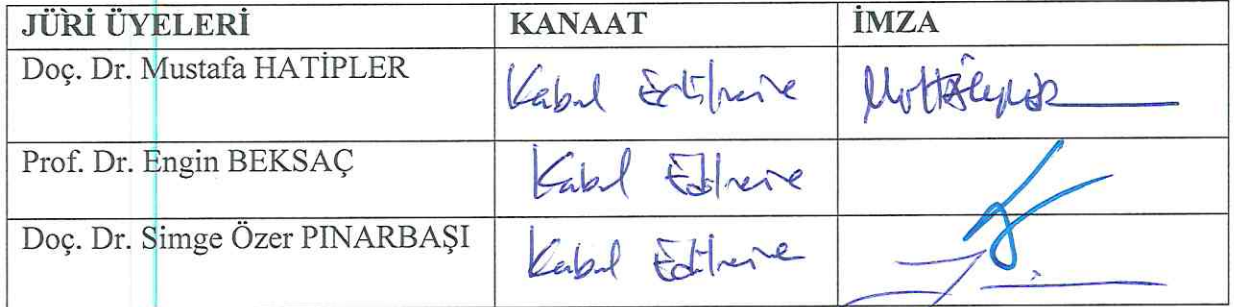 JÜRİ ÜYELERİ KANAAT İMZA
Doç. Dr. Mustafa HATİPLER Kabul Edilmesine
Prof. Dr. Engin BEKSAÇ Kabul Edilmesine
Doç. Dr. Simge Özer PINARBAŞI Kabul Edilmesine